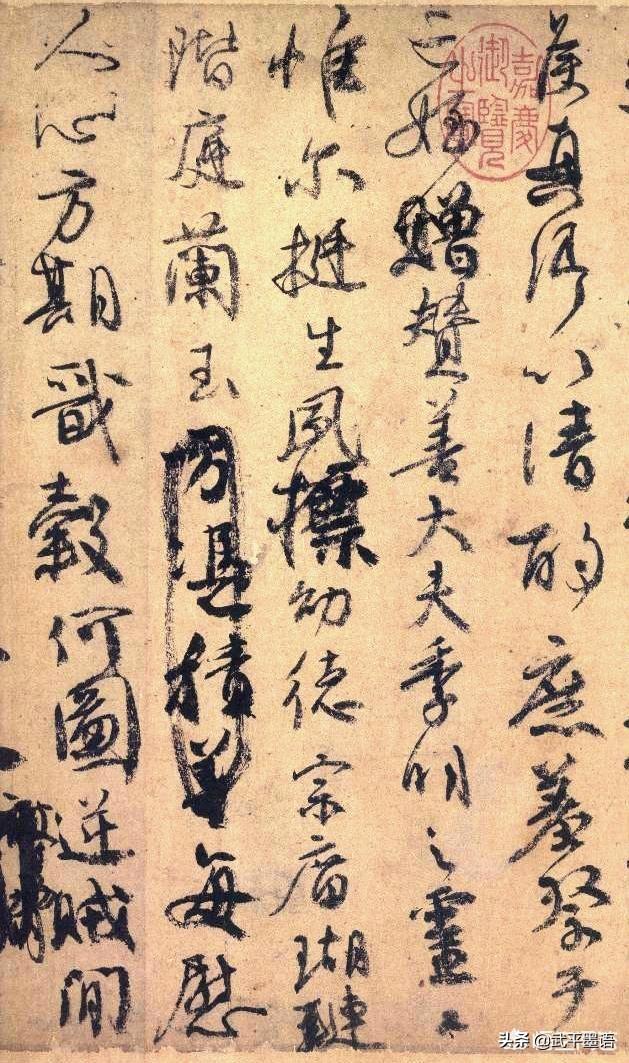 嘉慶御覽之寶
侯真卿以清酌庶羞祭于
亡姪贈贊善大夫季明之靈曰
惟尔挺生夙標幼德宗廟瑚璉
階庭蘭玉方憑積善每慰
人心方期戩穀何圖逆賊閒
头条 @武平墨语